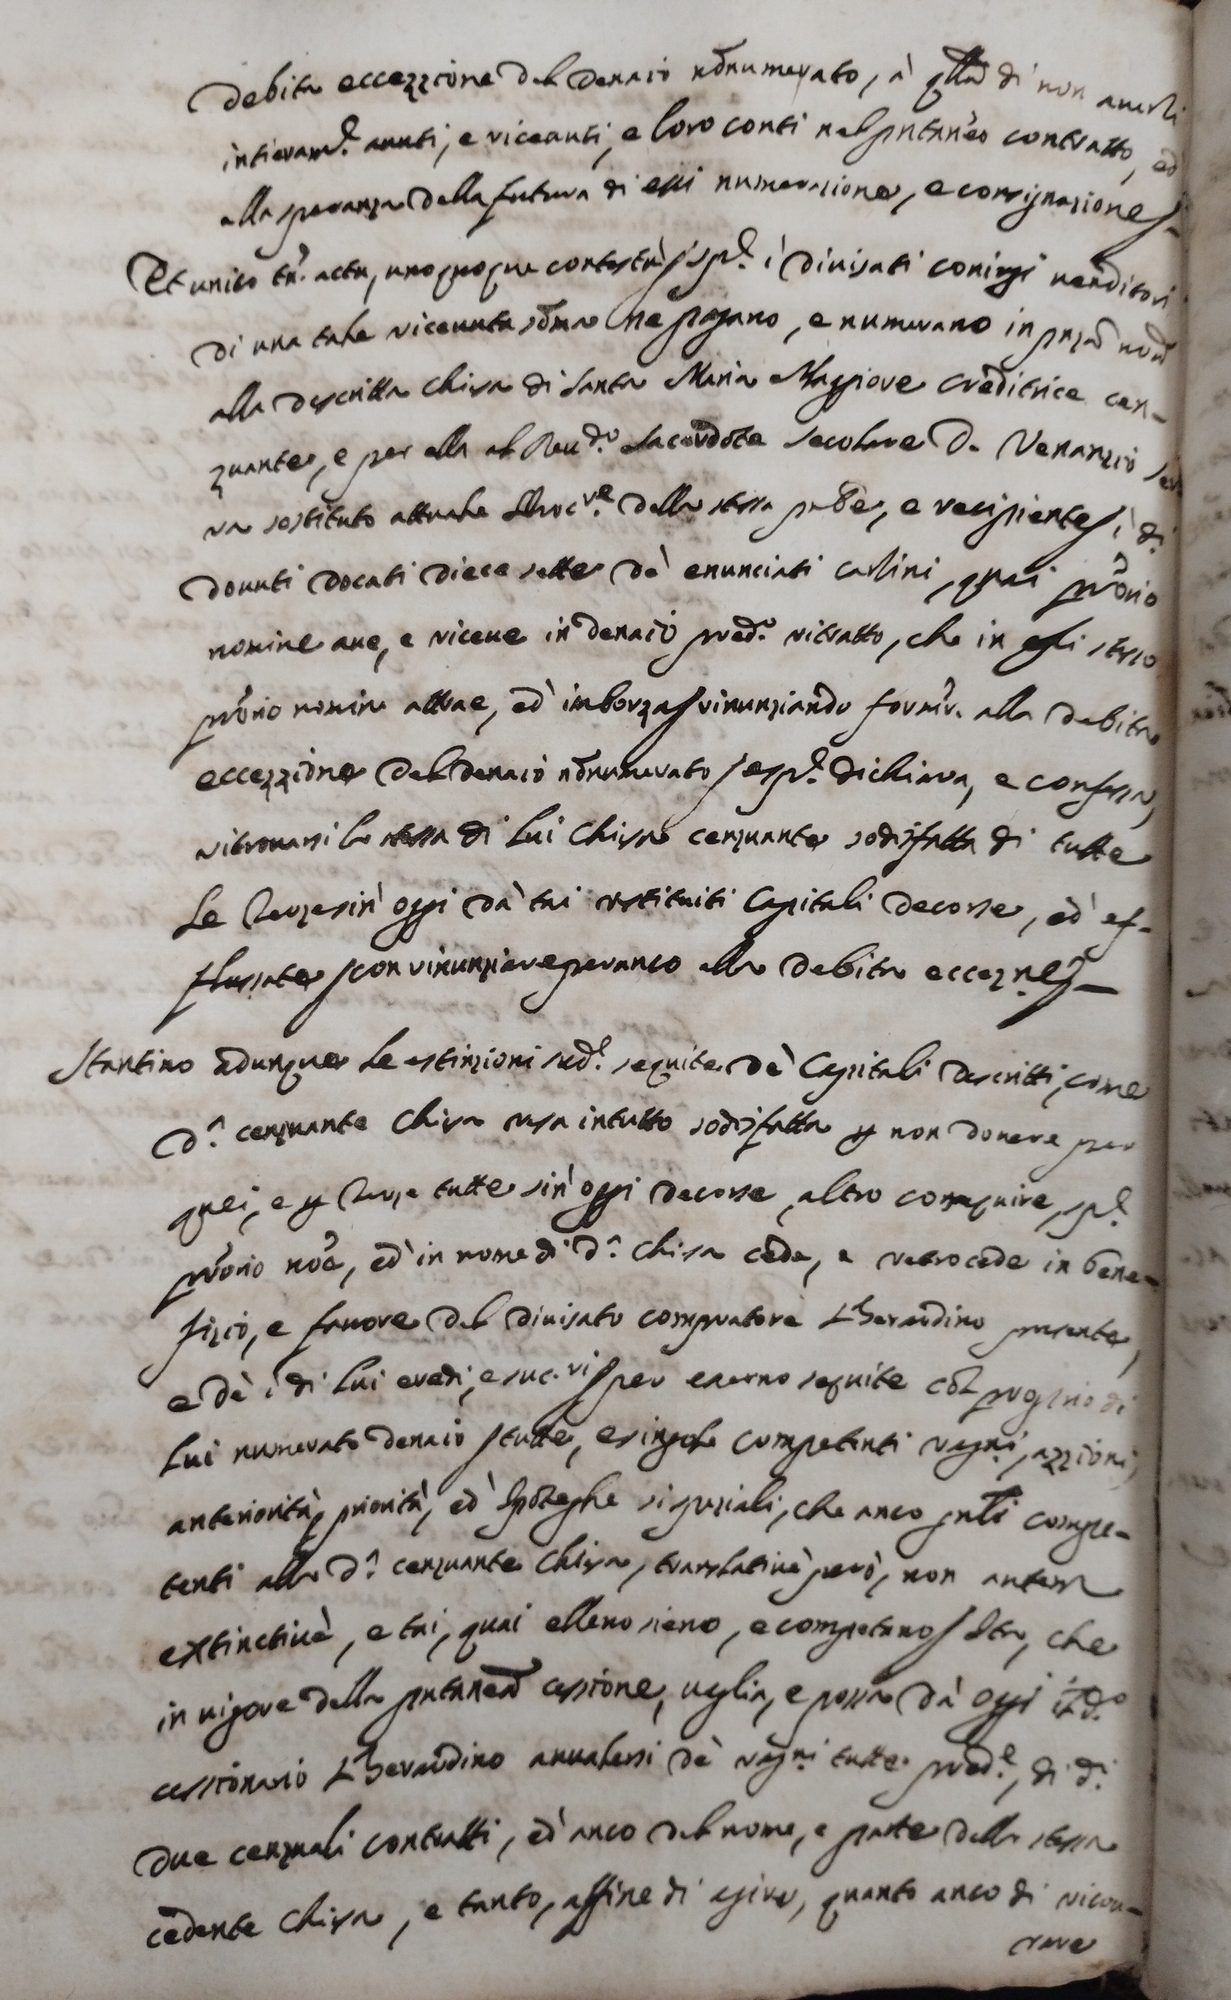 debita eccezzione del denaio nõnumerato, à qlla di non averli
intieram.e avuti, e riceuti, e loro conti nel pntaneo contratto, ed
alla speranza della futura di essi numerazione, e consignazione
Et unico tñ. actu, unoquoque contextu, sp.e i divisati conjugi venditori
di una tale ricevuta sõma ne pagano, e numerano in pnza nrã
alla descritta Chiesa di Santa Maria Maggiore creditrice cen-
zuante, e per ella al Reu.do Sacerdote Secolare D. Venanzio
va sostituto attuale Proc.re della stessa pnte, e recipiente i di
dovuti docati diece sette dè enunciati carlini, quai pprio
nomine ave, e riceve in denaio pred.o ritratto, che in essi stesso
pprio nomine attrae, ed imborza rinunziando form.r alla debita
eccezzione del denaio nõnumerato, e sp.e dichiara, e confessa,
ritrovarsi la stessa di lui Chiesa cenzuante sodisfatta di tutte
le terze sin' oggi dà tai restituiti Capitali decorse, ed ef-
flussate con rinunziare per anco alla debita eccezne
Stantino adunque le estinzioni sud.e seguite dè Capitali descritti, come
d.a cenzuante Chiesa resa intutto sodisfatta p non dovere per
quei, e p terze tutte sin' oggi decorse, altro conseguire, sp.e
pprio noẽ, ed in nome di d.a Chiesa cede, e retrocede in bene-
fizio, e favore del divisato compratore Berardino presente,
e dè i di lui eredi, e suc.ri per essersno seguite col proprio di
lui numerato denaio tutte, e singole competenti ragni, azzioni,
anteriorità, priorità, ed Ipoteghe si speziali, che anco gnli compe-
tenti alla d.a cenzuante Chiesa, translativè però, non anteia
extinctivè, e tai, quai elleno sieno, e competano Ita, che
in vigore della pntanea cessione, voglia, e possa dà oggi il d.o
cessionario Berardino avvalersi dè ragni tutte pred.e, di d.i
due cenzuali contratti, ed anco del nome, e parte della stessa
cedente Chiesa, e tanto, affine di agire, quanto anco di ricou-
rare